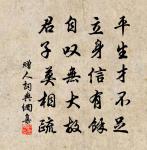 平生才不足
立身信有餘
自叹無大故
君子莫相疏
贈人詞典網集